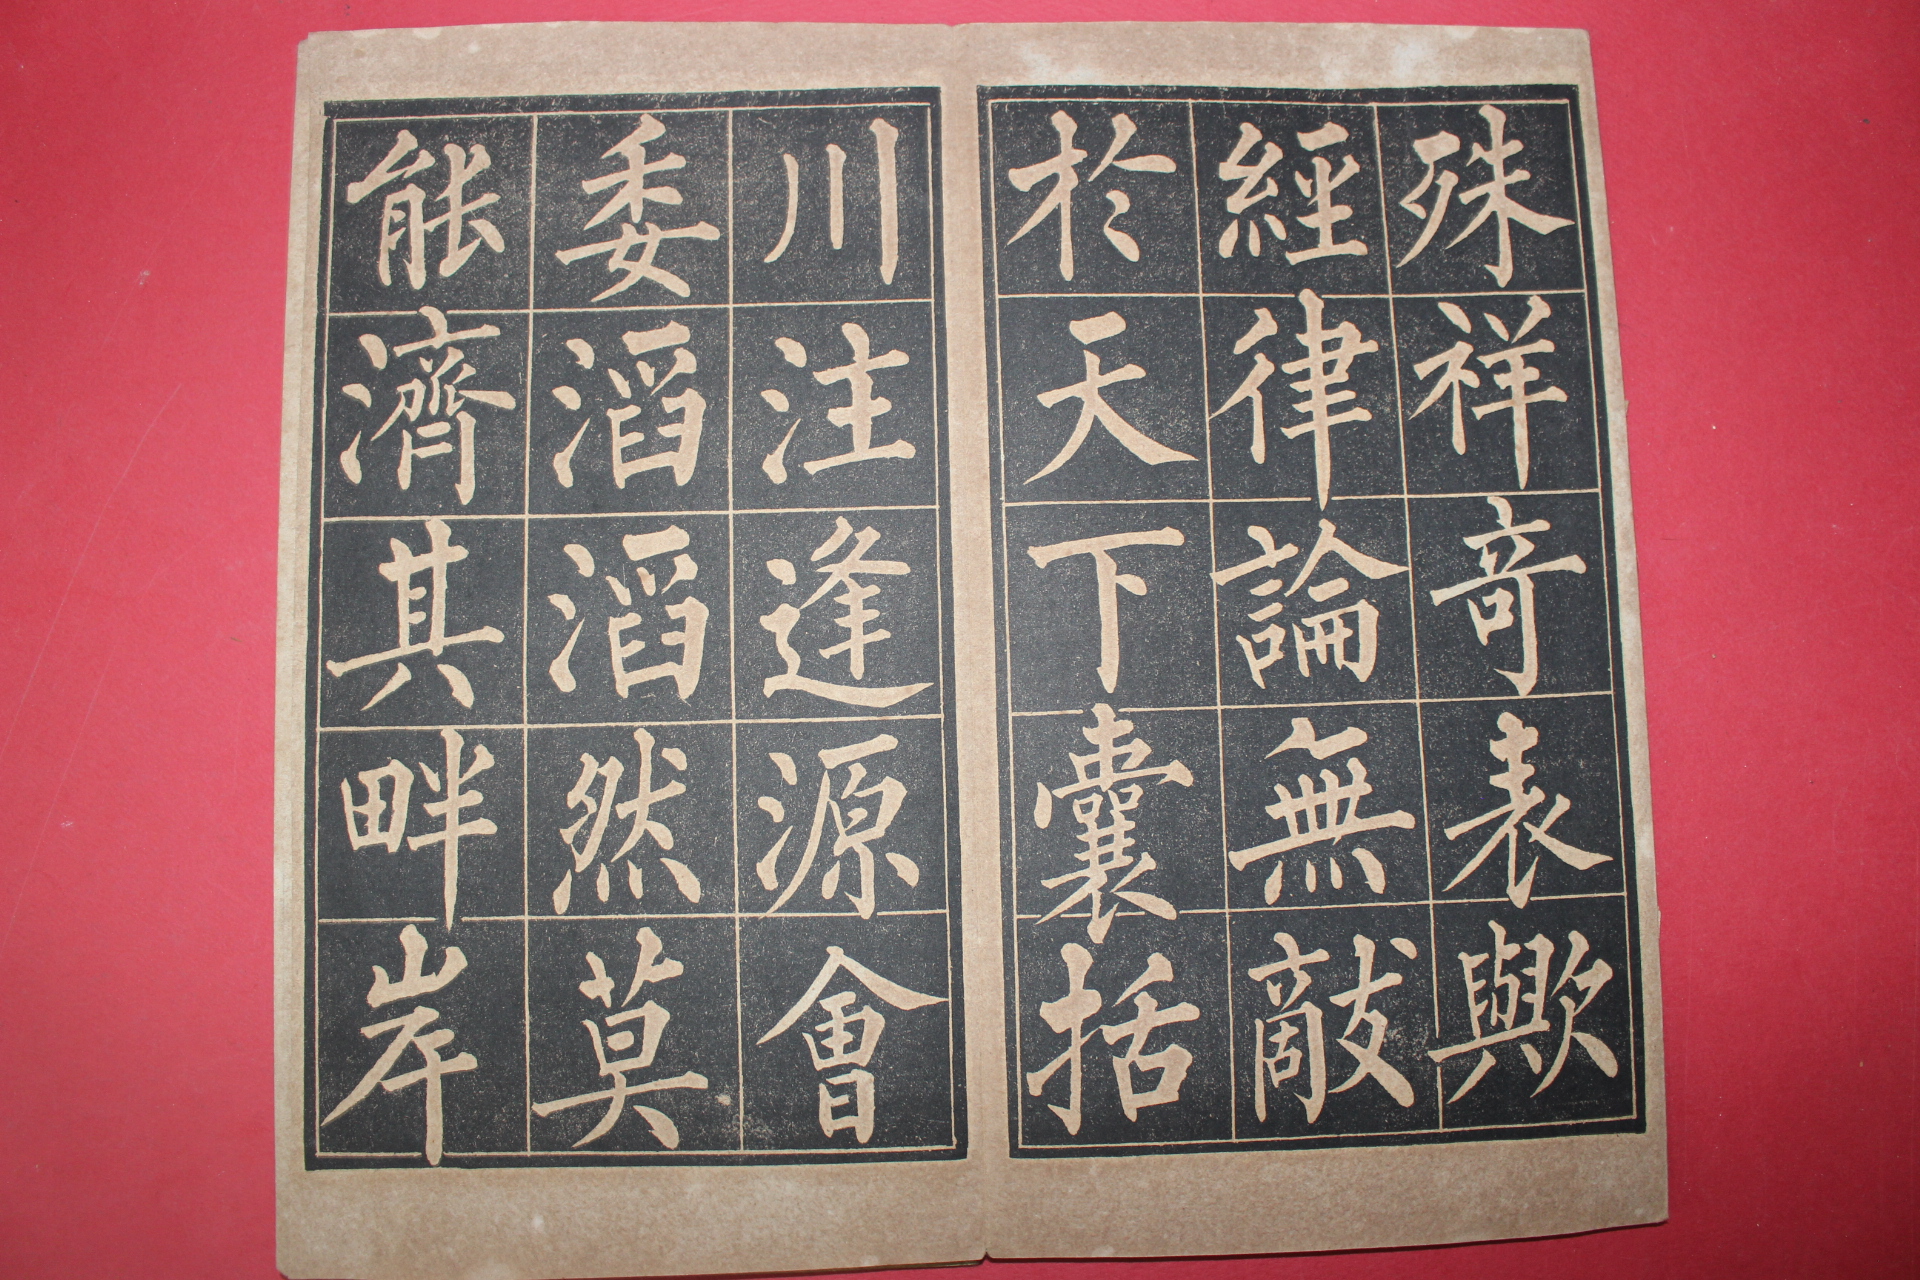 殊祥奇表歟
經律論無敵
於天下囊括
川注逢源會
委滔滔然莫
能濟其畔岸